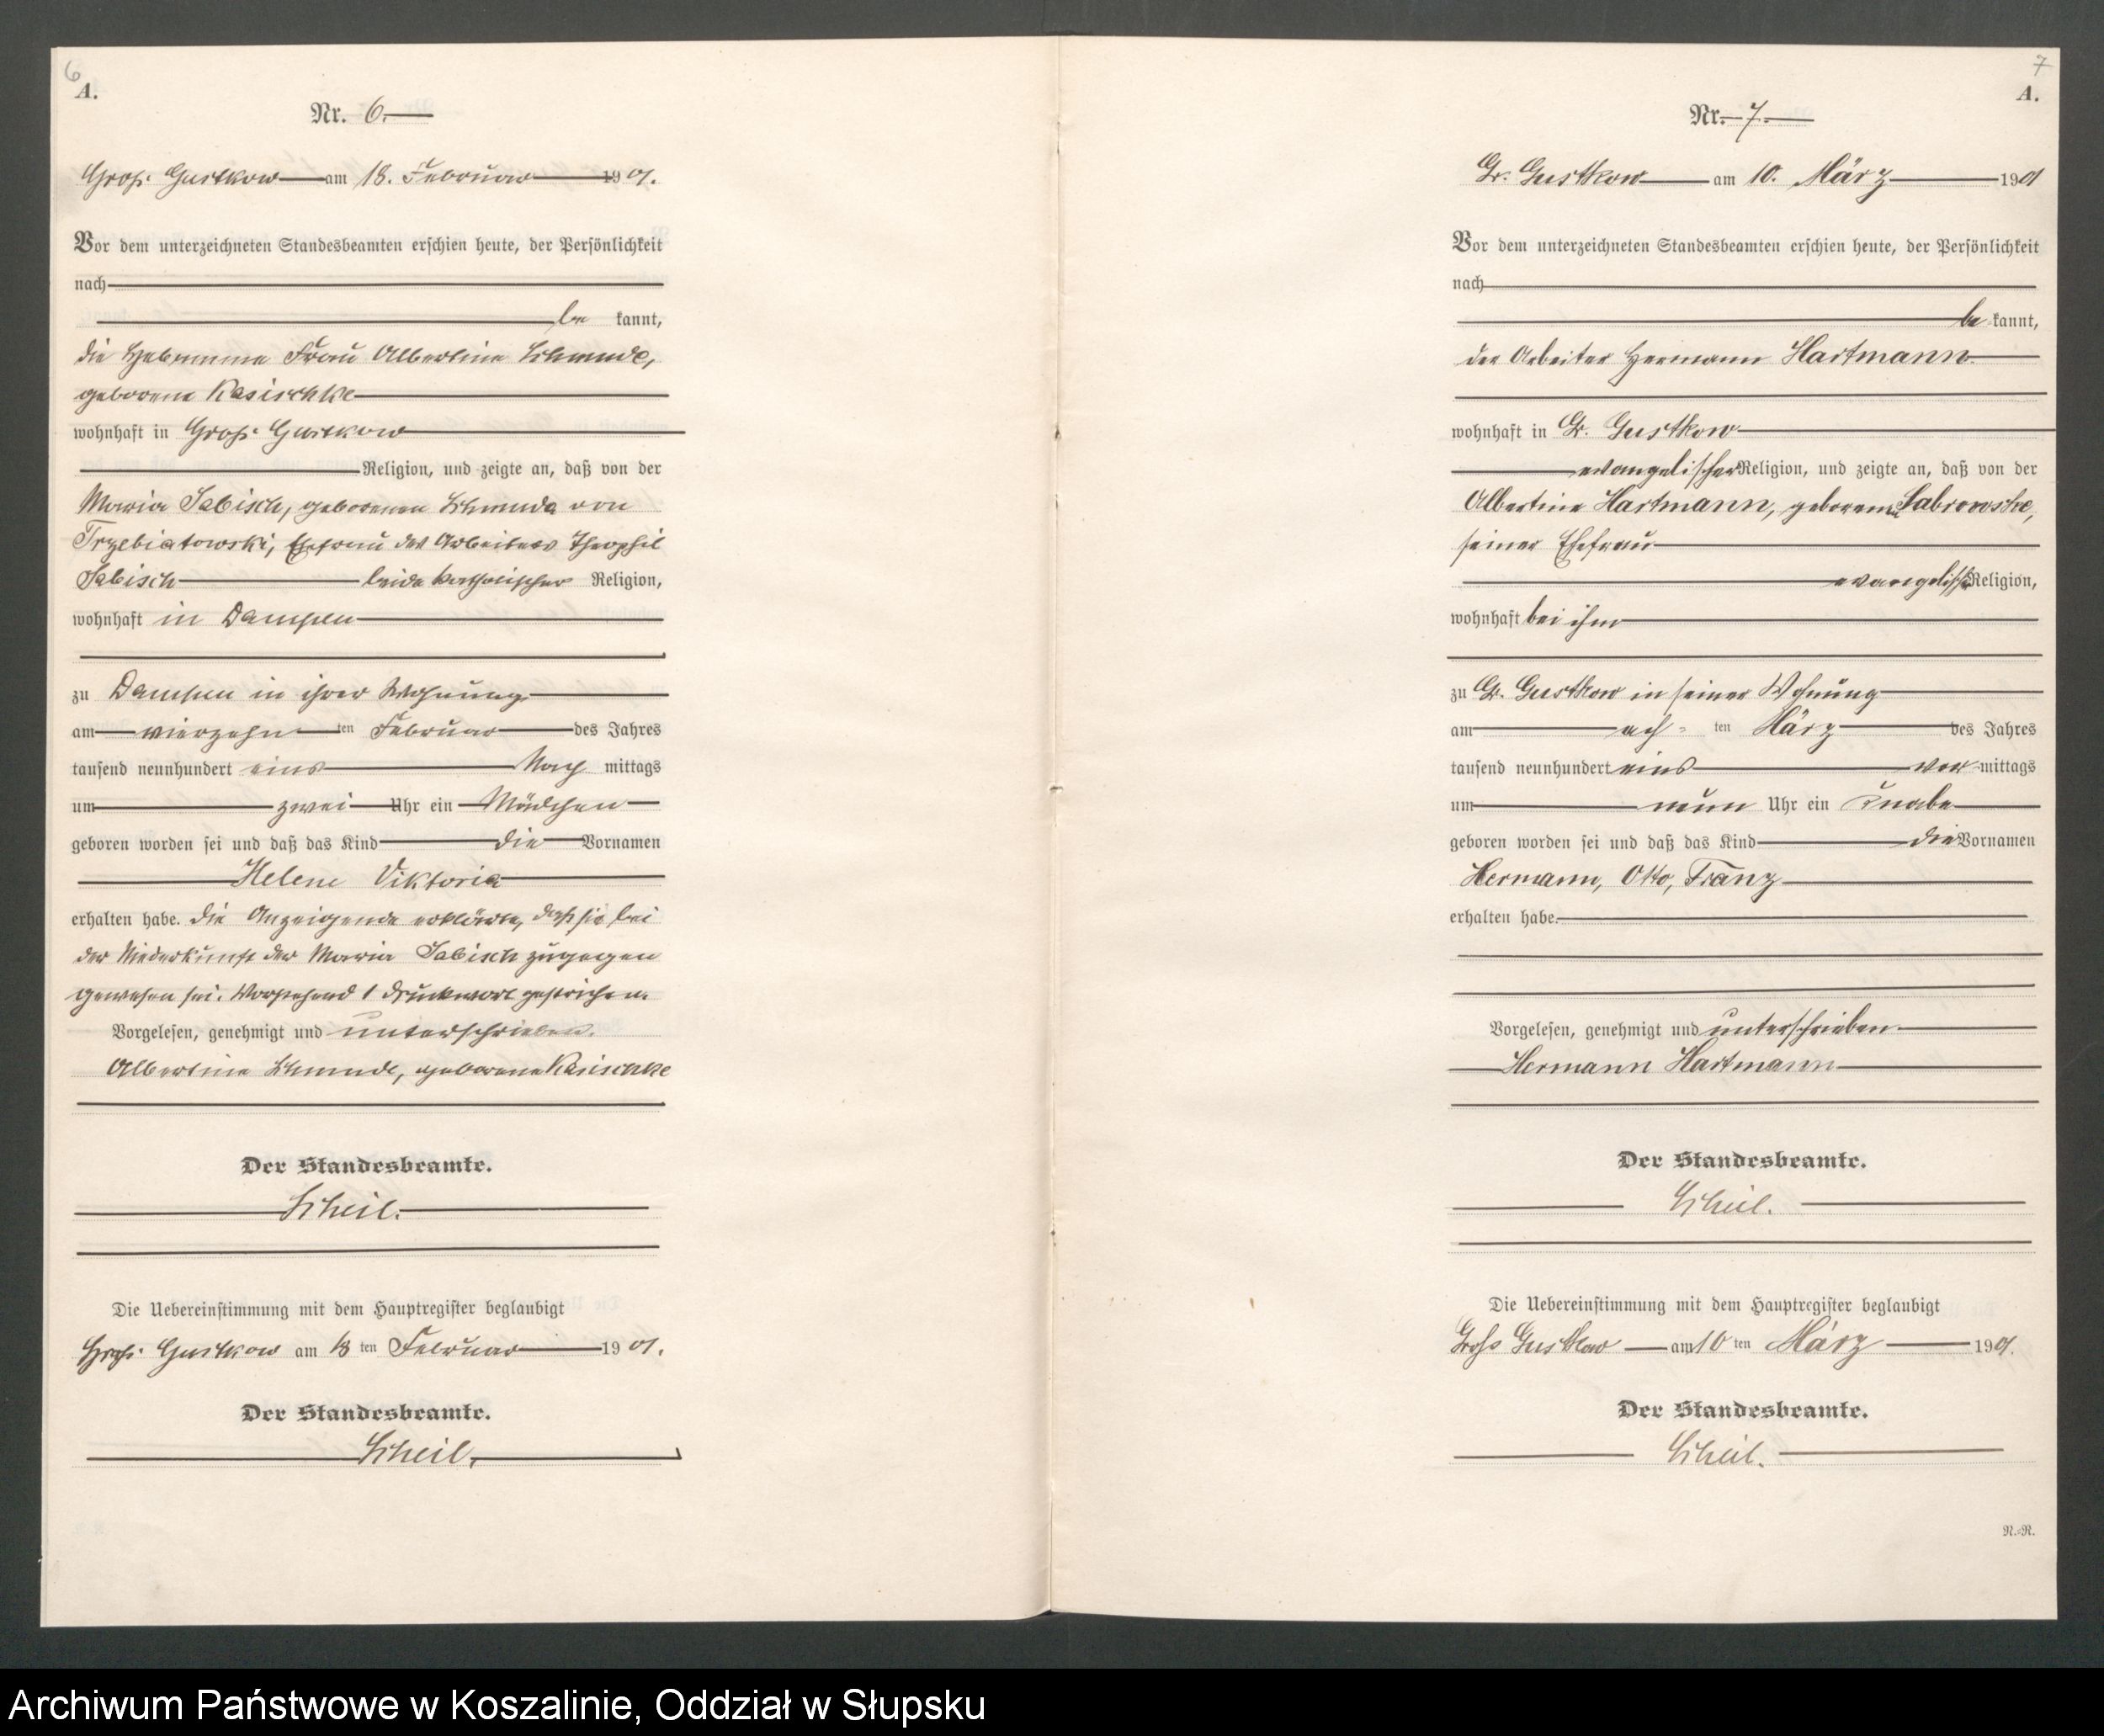 6
A.
Nr. 6.
Groß Gustkow am 18. Februar 1901.
Vor dem unterzeichneten Standesbeamten erschien heute, der Persönlichkeit
nach
be kannt,
die Hebamme Frau Albertine Schmude,
geborene Kasischke
wohnhaft in Groß Gustkow
Religion, und zeigte an, daß von der
Maria Sabisch, geborenen Schmuda von
Trzebiatowski, Ehefrau des Arbeiters Theophil
Sabisch beide katholischer Religion,
wohnhaft in Dampen
zu Dampen in ihrer Wohnung
am vierzehn ten Februar des Jahres
tausend neunhundert eins Nach mittags
um zwei Uhr ein Mädchen
geboren worden sei und daß das Kind die Vornamen
Helene Viktoria
erhalten habe. Die Anzeigende erklärte, daß sie bei
der Niederkunft der Maria Sabisch zugegen
gewesen sei. Vorstehend 1 Druckwort gestrichen.
Vorgelesen, genehmigt und unterschrieben.
Albertine Schmude, geborene Kasischke
Der Standesbeamte.
Scheil.
Die Uebereinstimmung mit dem Hauptregister beglaubigt
Groß Gustkow am 18 ten Februar 1901.
Der Standesbeamte.
Scheil.
7
A.
Nr. 7.
Gr. Gustkow am 10. März 1901
Vor dem unterzeichneten Standesbeamten erschien heute, der Persönlichkeit
nach
be kannt,
der Arbeiter Hermann Hartmann
wohnhaft in Gr. Gustkow
evangelischer Religion, und zeigte an, daß von der
Albertine Hartmann, geborenen Labrowske,
seiner Ehefrau
evangelisch Religion,
wohnhaft bei ihm
zu Gr. Gustkow in seiner Wohnung
am ach= ten März des Jahres
tausend neunhundert eins vor mittags
um neun Uhr ein Knabe
geboren worden sei und daß das Kind die Vornamen
Hermann, Otto, Franz
erhalten habe.
Vorgelesen, genehmigt und unterschrieben
Hermann Hartmann
Der Standesbeamte.
Scheil.
Die Uebereinstimmung mit dem Hauptregister beglaubigt
Groß Gustkow am 10 ten März 1901.
Der Standesbeamte.
Scheil.
N.=R.
Archiwum Państwowe w Koszalinie, Oddział w Słupsku